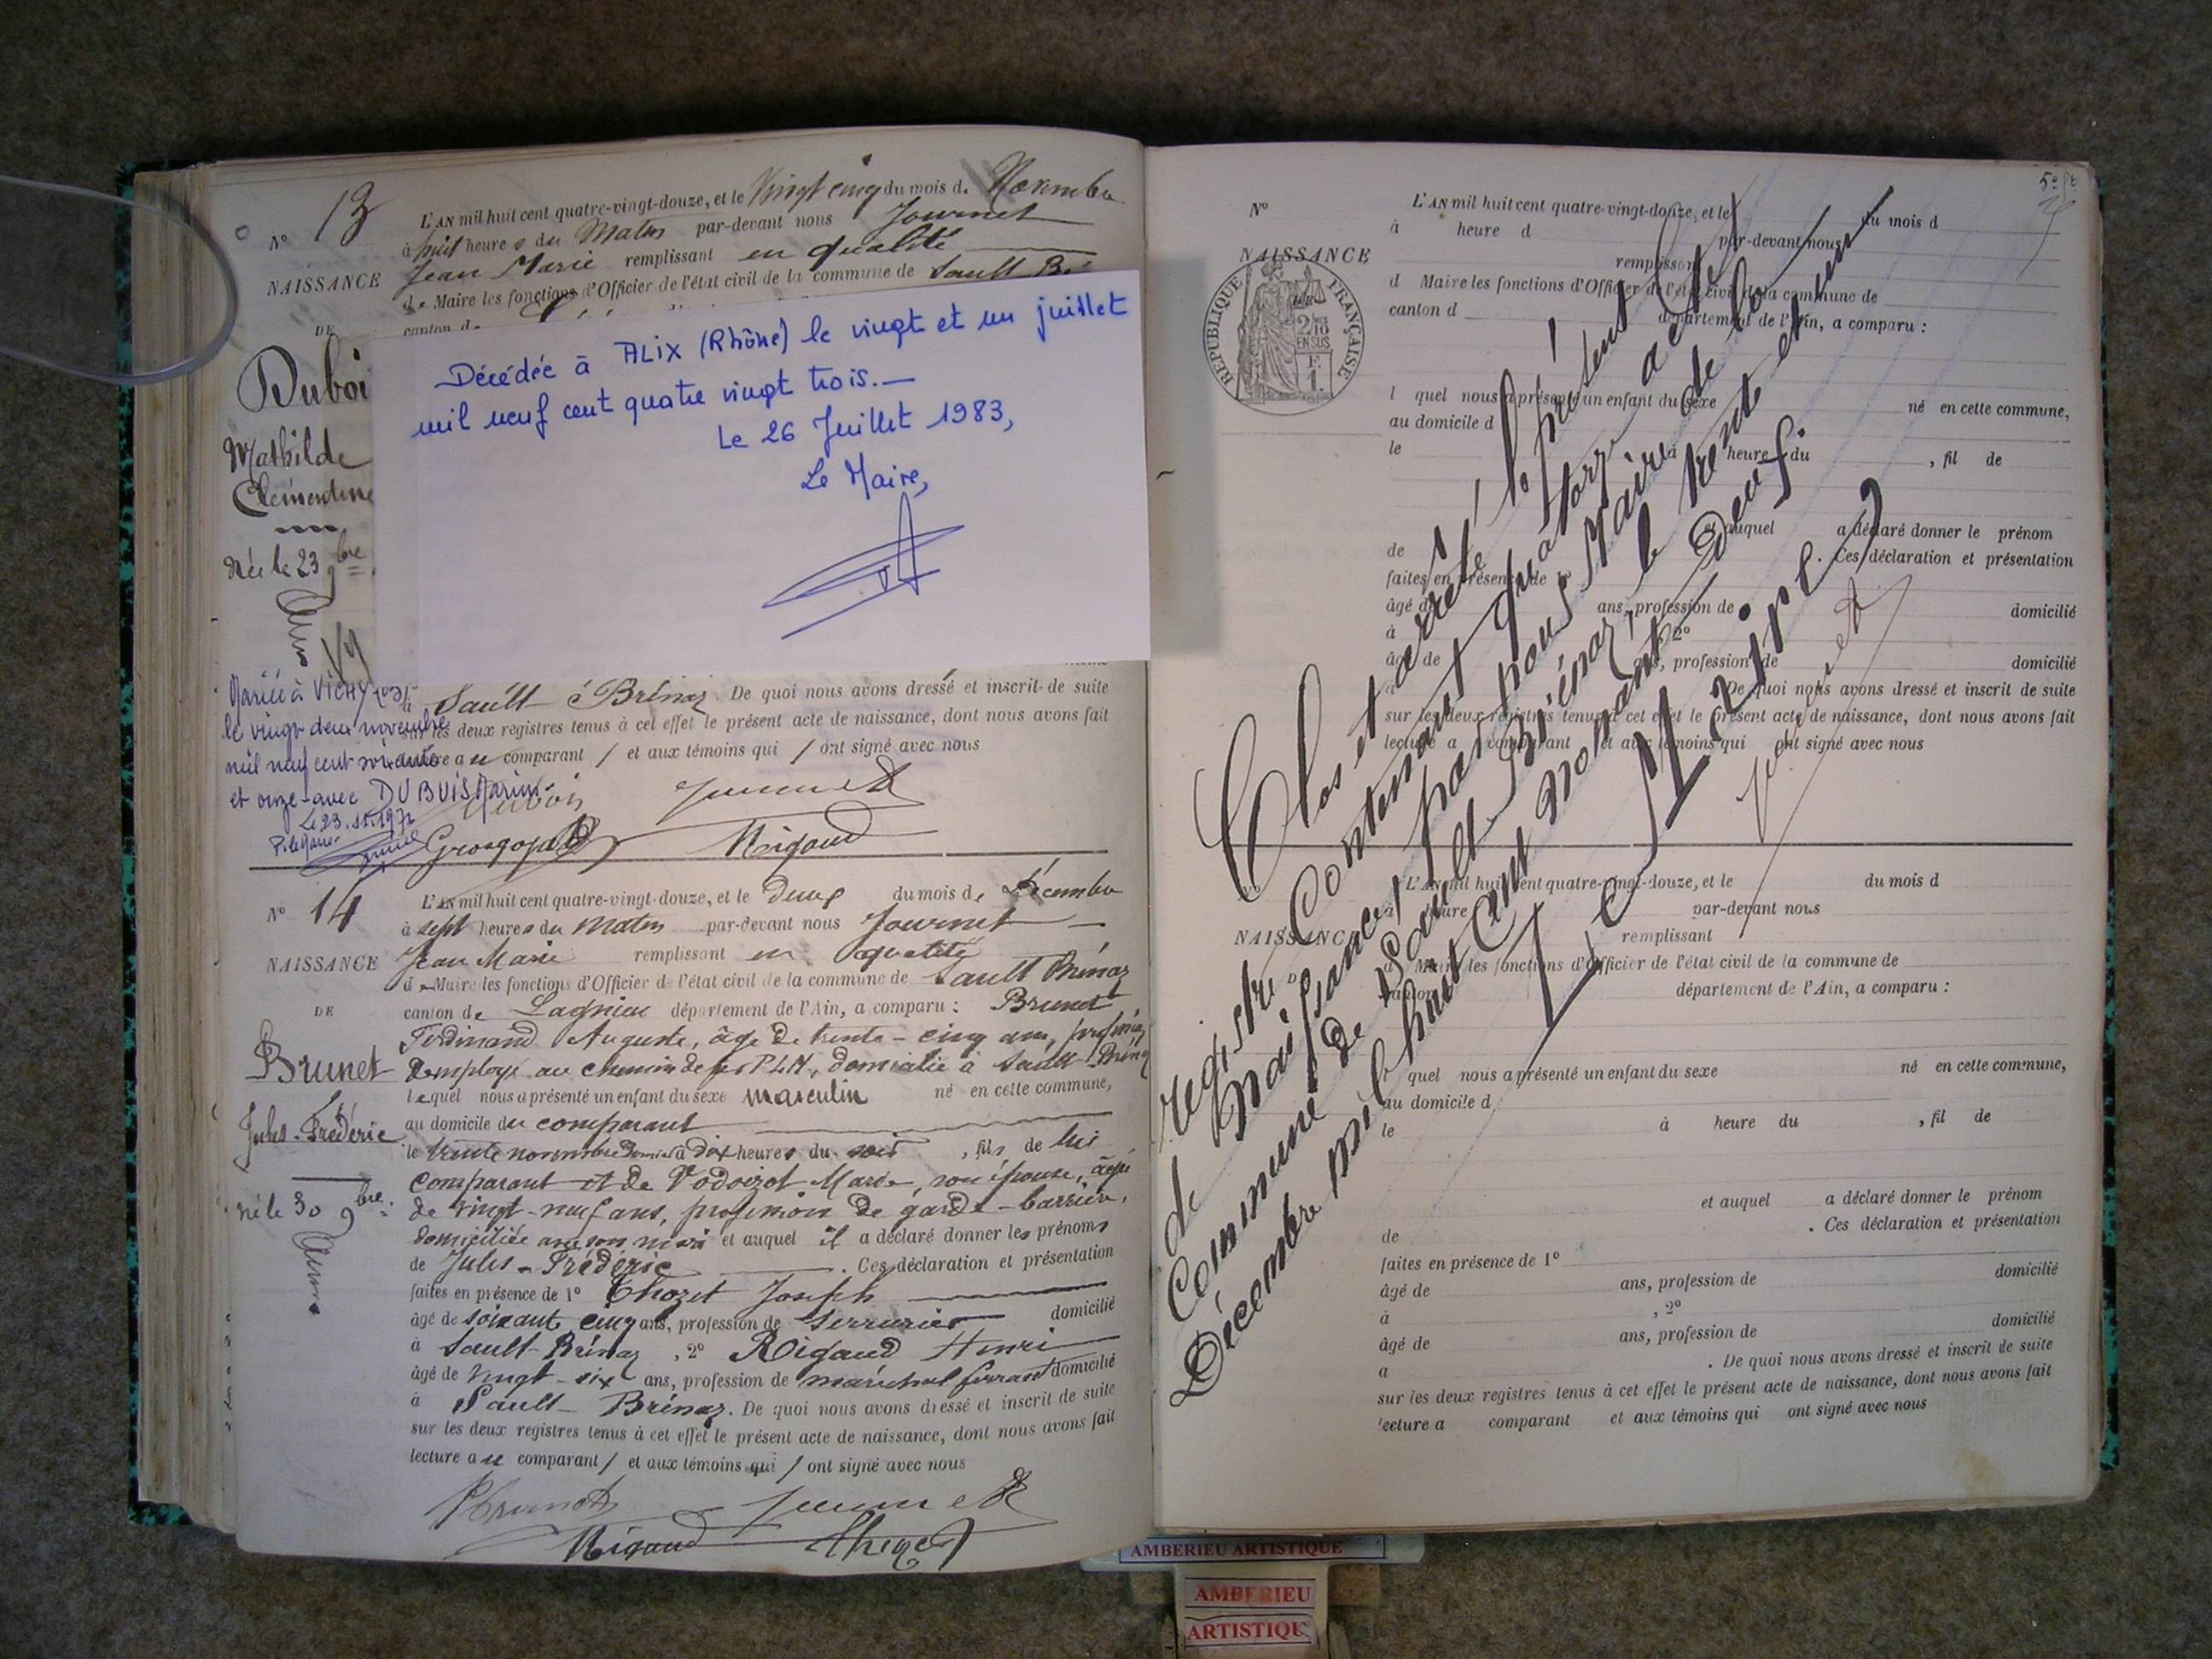 N° 13
L'AN mil huit cent quatre-vingt-douze, et le Vingt cinq du mois de Novembre
à huit heures du Matin par-devant nous Journet
Jean Marie remplissant en qualité
NAISSANCE
de Maire les fonctions d'Officier de l'état civil de la commune de Sault Bré
DE
canton de
Duboi
Mathilde
Clémentine
née le 23 9bre
Décédée à ALIX (Rhône) le vingt et un juillet
mil neuf cent quatre vingt trois.—
Le 26 Juillet 1983,
Le Maire,
Mariée à VICHY
le vingt deux novembre
mil neuf cent soixante
et onze avec DUBUIS Marius
Le 23.11.1971
P. le Maire
Sault-Brénaz. De quoi nous avons dressé et inscrit de suite
sur les deux registres tenus à cet effet le présent acte de naissance, dont nous avons fait
lecture au comparant / et aux témoins qui / ont signé avec nous
Dubois Journet
Rigaud
N° 14
L'AN mil huit cent quatre-vingt-douze, et le deux du mois de Décembre
à sept heures du matin par-devant nous Journet
Jean Marie remplissant en qualité
NAISSANCE
de Maire les fonctions d'Officier de l'état civil de la commune de Sault Brénaz
DE
canton de Lagnieu département de l'Ain, a comparu : Brunet
Ferdinand Auguste, âgé de trente-cinq ans, profession
Brunet
d'employé au chemin de fer P.L.M., domicilié à Sault-Brénaz
lequel nous a présenté un enfant du sexe masculin né en cette commune,
Jules-Frédéric
au domicile du comparant
le trente novembre dernier à dix heures du soir, fils de lui
comparant et de Vodoizot Marie, son épouse, âgée
né le 30 9bre
de vingt-neuf ans, profession de garde-barrière,
domiciliée avec son mari et auquel il a déclaré donner les prénoms
de Jules-Frédéric. Ces déclaration et présentation
faites en présence de 1° Thozet Joseph
âgé de soixante cinq ans, profession de serrurier domicilié
à Sault-Brénaz, 2° Rigaud Henri
âgé de vingt-six ans, profession de maréchal ferrant domicilié
à Sault-Brénaz. De quoi nous avons dressé et inscrit de suite
sur les deux registres tenus à cet effet le présent acte de naissance, dont nous avons fait
lecture au comparant / et aux témoins qui / ont signé avec nous
Brunet Journet
Rigaud Thozet
N°
L'AN mil huit cent quatre-vingt-douze, et le du mois d
à heure d par-devant nous
remplissant
NAISSANCE
RÉPUBLIQUE FRANÇAISE
2/10
EN SUS
d Maire les fonctions d'Officier de l'état civil de la commune de
canton d département de l'Ain, a comparu :
l quel nous a présenté un enfant du sexe né en cette commune,
au domicile d
le à heure du , fil de
et auquel a déclaré donner le prénom
de . Ces déclaration et présentation
faites en présence de 1°
âgé de ans, profession de domicilié
à , 2°
âgé de ans, profession de domicilié
à . De quoi nous avons dressé et inscrit de suite
sur les deux registres tenus à cet effet le présent acte de naissance, dont nous avons fait
lecture a comparant et aux témoins qui ont signé avec nous
Clos et arrêté le présent
registre Contenant quatorze actes
de Naissances par nous Maire de la
Commune de Sault-Brénaz, le trente et un
Décembre mil huit cent nonante-deuf.
Le Maire,
Journet
L'AN mil huit cent quatre-vingt-douze, et le du mois d
à heure par-devant nous
NAISSANCE
remplissant
D
d Maire les fonctions d'Officier de l'état civil de la commune de
canton département de l'Ain, a comparu :
l quel nous a présenté un enfant du sexe né en cette commune,
au domicile d
le à heure du , fil de
et auquel a déclaré donner le prénom
de . Ces déclaration et présentation
faites en présence de 1°
âgé de ans, profession de domicilié
à , 2°
âgé de ans, profession de domicilié
a . De quoi nous avons dressé et inscrit de suite
sur les deux registres tenus à cet effet le présent acte de naissance, dont nous avons fait
lecture a comparant et aux témoins qui ont signé avec nous
AMBERIEU ARTISTIQUE
AMBERIEU
ARTISTIQU